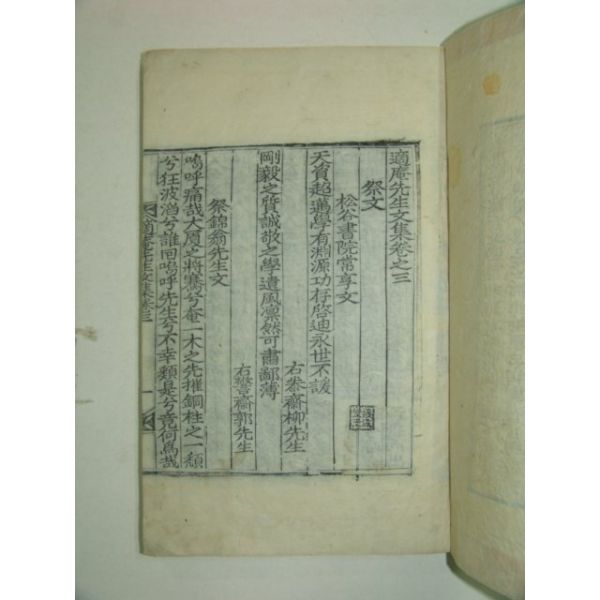 適庵先生文集卷之三
祭文
松谷書院常享文
天資超邁學有淵源功存啓迪永世不諼
右泰齋柳先生
剛毅之質誠敬之學遺風凛然可肅鄙薄
右㘽齋郭先生
祭錦翁先生文
嗚呼痛哉大厦之將騫兮奄一木之先摧銅柱之一頹
兮狂波滔兮誰回嗚呼先生兮不幸類是兮竟何爲哉
適庵先生文集卷三
一